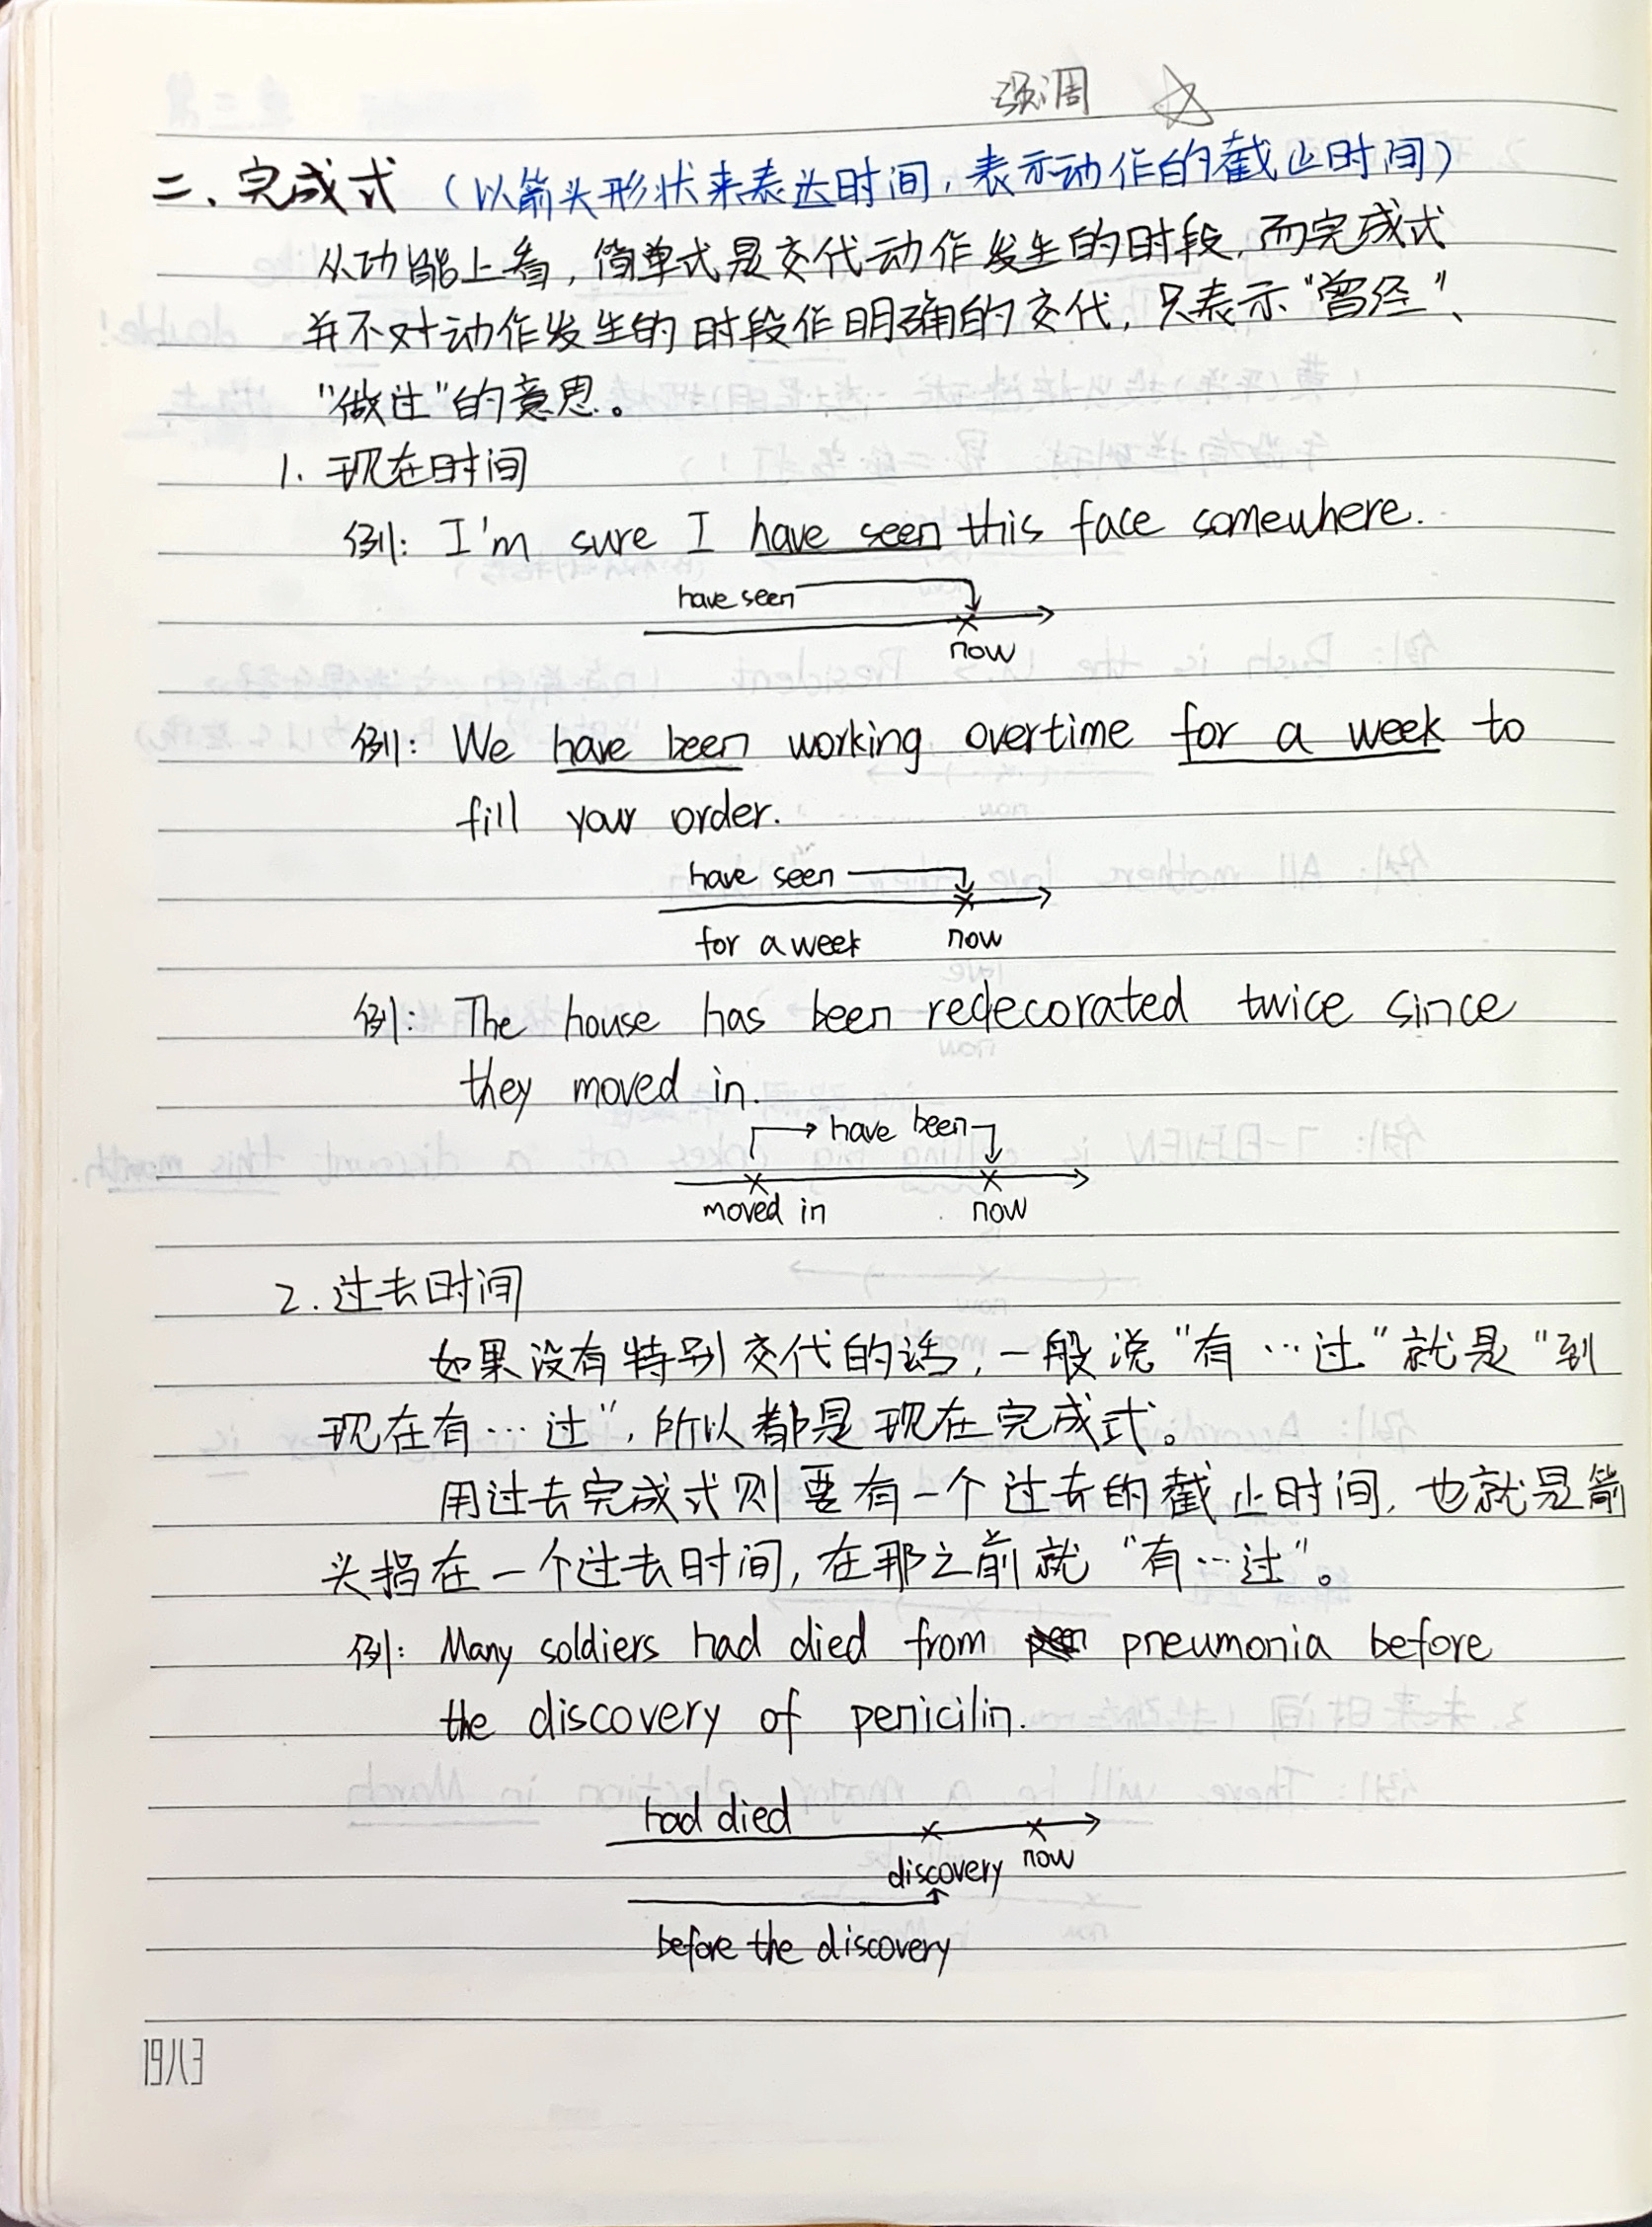 强调 ☆
二、完成式（以箭头形状来表达时间，表示动作的截止时间）
从功能上看，简单式是交代动作发生的时段，而完成式
并不对动作发生的时段作明确的交代，只表示“曾经”、
“做过”的意思。
1. 现在时间
例：I'm sure I have seen this face somewhere.
have seen
now
例：We have been working overtime for a week to
fill your order.
have seen
for a week now
例：The house has been redecorated twice since
they moved in.
have been
moved in now
2. 过去时间
如果没有特别交代的话，一般说“有…过”就是“到
现在有…过”，所以都是现在完成式。
用过去完成式则要有一个过去的截止时间，也就是箭
头指在一个过去时间，在那之前就“有…过”。
例：Many soldiers had died from pneumonia before
the discovery of penicilin.
had died
discovery now
before the discovery